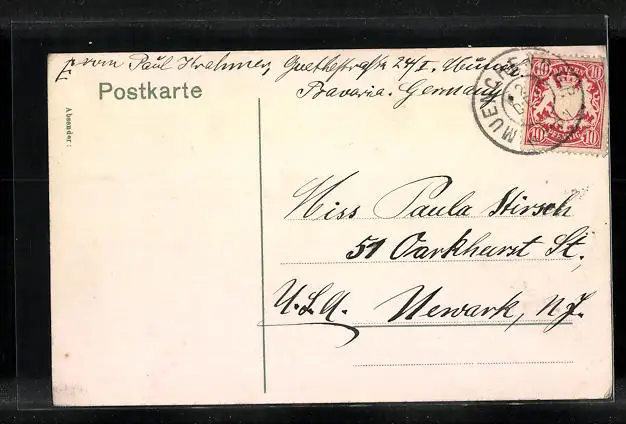 From Paul Krahmer, Goethestraße 24/I, Munich
Bavaria. Germany
Postkarte
Absender:
MUENCHEN
10 BAYERN 10
10 PFENNIG 10
Miss Paula Hirsch
51 Parkhurst St.
U.S.A. Newark, N.J.